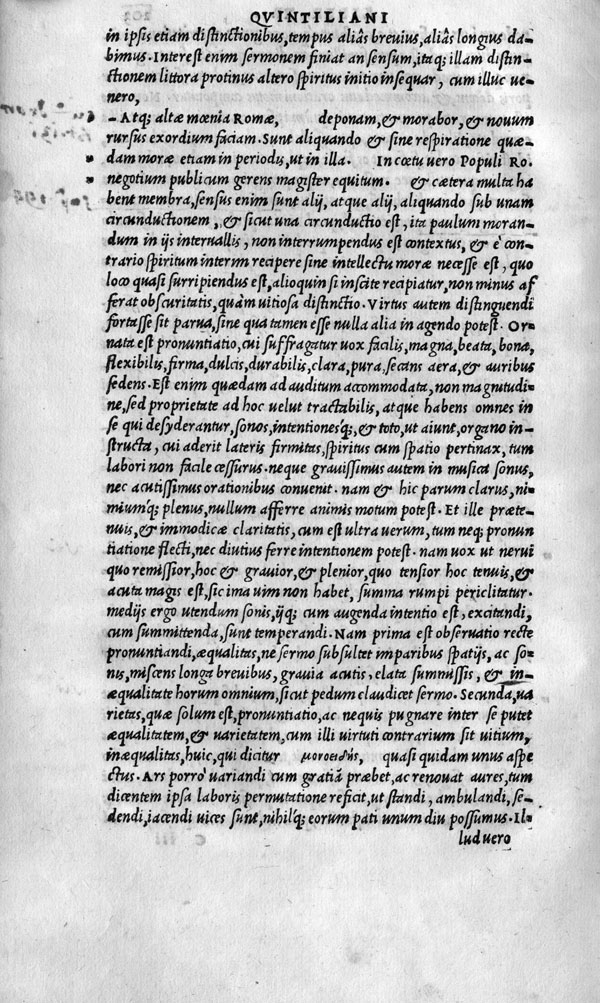 QVINTILIANI
in ipsis etiam distinctionibus, tempus aliâs breuius, aliâs longius da-
bimus. Interest enim sermonem finiat an sensum, itaq; illam distin-
ctionem littora protinus altero spiritus initio insequar, cum illuc ue-
nero,
- Atq; altæ mœnia Romæ, deponam, & morabor, & nouum
rursus exordium faciam. Sunt aliquando & sine respiratione quæ-
dam moræ etiam in periodis, ut in illa. In cœtu uero Populi Ro.
negotium publicum gerens magister equitum. & cætera multa ha
bent membra, sensus enim sunt alij, atque alij, aliquando sub unam
circunductionem, & sicut una circunductio est, ita paulum moran-
dum in ijs interuallis, non interrumpendus est contextus, & è con-
trario spiritum interim recipere sine intellectu moræ necesse est, quo
loco quasi surripiendus est, alioquin si inscite recipiatur, non minus af
ferat obscuritatis, quàm uitiosa distinctio. Virtus autem distinguendi
fortasse sit parua, sine qua tamen esse nulla alia in agendo potest. Or-
nata est pronuntiatio, cui suffragatur uox facilis, magna, beata, bona,
flexibilis, firma, dulcis, durabilis, clara, pura, secans aera, & auribus
sedens. Est enim quædam ad auditum accommodata, non magnitudi-
ne, sed proprietate ad hoc uelut tractabilis, atque habens omnes in
se qui desyderantur, sonos, intentionesq;, & toto, ut aiunt, organo in-
structa, cui aderit lateris firmitas, spiritus cum spatio pertinax, tum
labori non facile cessurus. neque grauissimus autem in musica sonus,
nec acutissimus orationibus conuenit. nam & hic parum clarus, ni-
miumq; plenus, nullum afferre animis motum potest. Et ille præte-
nuis, & immodicæ claritatis, cum est ultra uerum, tum neq; pronun
tiatione flecti, nec diutius ferre intentionem potest. nam uox ut nerui
quo remissior, hoc & grauior, & plenior, quo tensior hoc tenuis, &
acuta magis est, sic ima uim non habet, summa rumpi periclitatur.
medijs ergo utendum sonis, ijq; cum augenda intentio est, excitandi,
cum summittenda, sunt temperandi. Nam prima est obseruatio recte
pronuntiandi, æqualitas, ne sermo subsultet imparibus spatijs, ac so-
nis, miscens longa breuibus, grauia acutis, elata summissis, & in-
æqualitate horum omnium, sicut pedum claudicet sermo. Secunda, ua
rietas, quæ solum est, pronuntiatio, ac nequis pugnare inter se putet
æqualitatem, & uarietatem, cum illi uirtuti contrarium sit uitium,
inæqualitas, huic, qui dicitur μονοειδής, quasi quidam unus aspe
ctus. Ars porrò uariandi cum gratiã præbet, ac renouat aures, tum
dicentem ipsa laboris permutatione reficit, ut standi, ambulandi, se-
dendi, iacendi uices sunt, nihilq; eorum pati unum diu possumus. Il-
lud uero